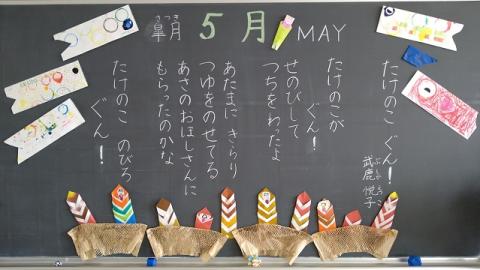 皐月
さつき
5月
MAY
たけのこ ぐん!
武鹿 悦子
ぶしか えつこ
たけのこが
ぐん!
せのびして
つちをわったよ
あたまに きらり
つゆをのせてる。
あさのおほしさんに
もらったのかな
たけのこ のびろ
ぐん!